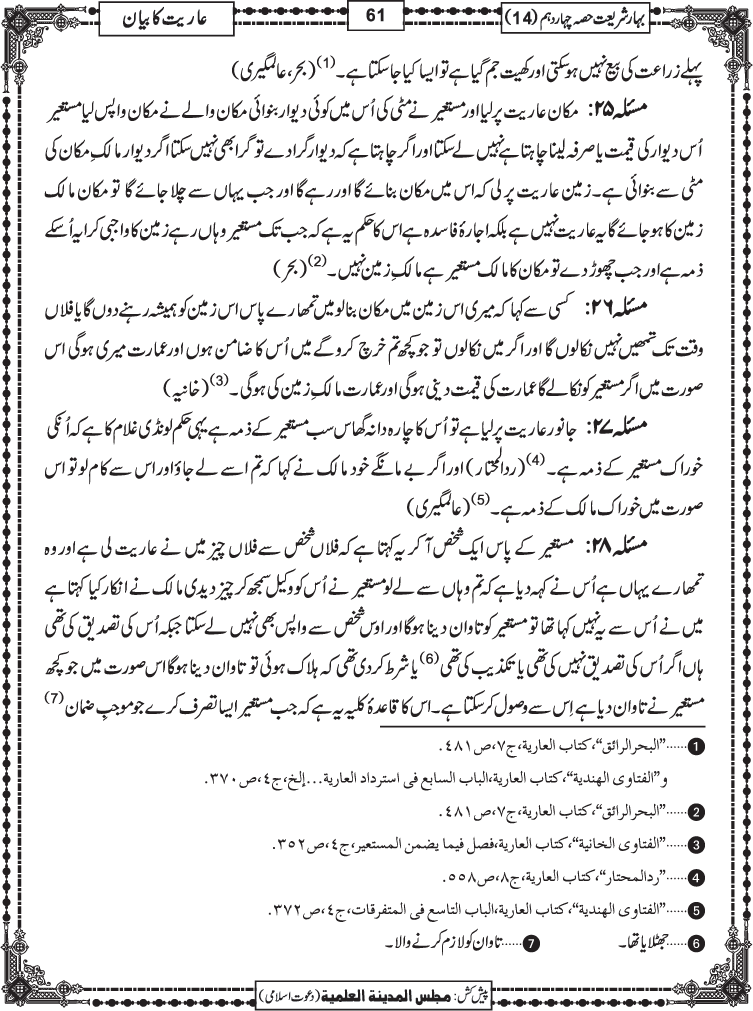 بہارشریعت حصہ چہاردہم (14)
61
عاریت کا بیان
پہلے زراعت کی بیع نہیں ہوسکتی اور کھیت جم گیا ہے تو ایسا کیا جاسکتا ہے۔(1) (بحر، عالمگیری)
مسئلہ ۲۵: مکان عاریت پر لیا اور مستعیر نے مٹی کی اُس میں کوئی دیوار بنوائی مکان والے نے مکان واپس لیا مستعیر
اُس دیوار کی قیمت یا صرفہ لینا چاہتا ہے نہیں لے سکتا اور اگر چاہتا ہے کہ دیوار گرادے تو گرا بھی نہیں سکتا اگر دیوار مالکِ مکان کی
مٹی سے بنوائی ہے۔ زمین عاریت پر لی کہ اس میں مکان بنائے گا اور رہے گا اور جب یہاں سے چلا جائے گا تو مکان مالک
زمین کا ہو جائے گا یہ عاریت نہیں ہے بلکہ اجارۂ فاسدہ ہے اس کا حکم یہ ہے کہ جب تک مستعیر وہاں رہے زمین کا واجبی کرایہ اُسکے
ذمہ ہے اور جب چھوڑ دے تو مکان کا مالک مستعیر ہے مالکِ زمین نہیں۔(2) (بحر)
مسئلہ ۲۶: کسی سے کہا کہ میری اس زمین میں مکان بنالو میں تمھارے پاس اس زمین کو ہمیشہ رہنے دوں گا یا فلاں
وقت تک تمھیں نہیں نکالوں گا اور اگر میں نکالوں تو جو کچھ تم خرچ کروگے میں اُس کا ضامن ہوں اور عمارت میری ہوگی اس
صورت میں اگر مستعیر کو نکالے گا عمارت کی قیمت دینی ہوگی اور عمارت مالکِ زمین کی ہوگی۔(3) (خانیہ)
مسئلہ ۲۷: جانور عاریت پر لیا ہے تو اُس کا چارہ دانہ گھاس سب مستعیر کے ذمہ ہے یہی حکم لونڈی غلام کا ہے کہ اُنکی
خوراک مستعیر کے ذمہ ہے۔(4) (ردالمحتار) اور اگر بے مانگے خود مالک نے کہا کہ تم اسے لے جاؤ اور اس سے کام لو تو اس
صورت میں خوراک مالک کے ذمہ ہے۔(5) (عالمگیری)
مسئلہ ۲۸: مستعیر کے پاس ایک شخص آکر یہ کہتا ہے کہ فلاں شخص سے فلاں چیز میں نے عاریت لی ہے اور وہ
تمھارے یہاں ہے اُس نے کہہ دیا ہے کہ تم وہاں سے لے لو مستعیر نے اُس کو وکیل سمجھ کر چیز دیدی مالک نے انکار کیا کہتا ہے
میں نے اُس سے یہ نہیں کہا تھا تو مستعیر کو تاوان دینا ہوگا اور اوس شخص سے واپس بھی نہیں لے سکتا جبکہ اُس کی تصدیق کی تھی
ہاں اگر اُس کی تصدیق نہیں کی تھی یا تکذیب کی تھی(6) یا شرط کردی تھی کہ ہلاک ہوئی تو تاوان دینا ہوگا اس صورت میں جو کچھ
مستعیر نے تاوان دیا ہے اِس سے وصول کرسکتا ہے۔ اس کا قاعدۂ کلیہ یہ ہے کہ جب مستعیر ایسا تصرف کرے جو موجبِ ضمان(7)
1 ......"البحرالرائق"، کتاب العارية، ج٧، ص٤٨١.
و"الفتاوی الهندية"، کتاب العارية، الباب السابع فی استرداد العارية...إلخ، ج٤، ص٣٧٠.
2 ......"البحرالرائق"، کتاب العارية، ج٧، ص٤٨١.
3 ......"الفتاوی الخانية"، کتاب العارية، فصل فیما یضمن المستعیر، ج٤، ص٣٥٢.
4 ......"ردالمحتار"، کتاب العارية، ج٨، ص٥٥٨.
5 ......"الفتاوی الهندية"، کتاب العارية، الباب التاسع فی المتفرقات، ج٤، ص٣٧٢.
6 ......جھٹلایا تھا۔ 7 ......تاوان کو لازم کرنے والا۔
پیش کش: مجلس المدینة العلمیة (دعوت اسلامی)